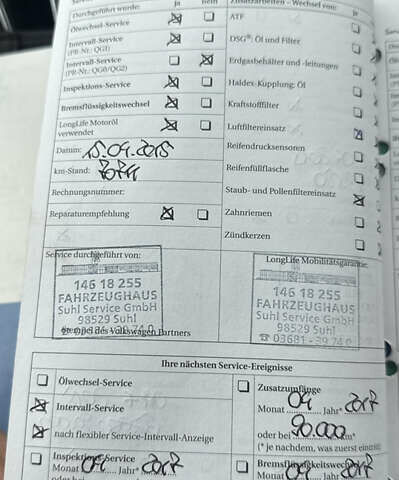 Durchgeführt wurde: ja nein
Zusatzarbeiten - Wechsel von: ja
Ölwechsel-Service
ATF
Intervall-Service
(PR-Nr.: QG1)
DSG®: Öl und Filter
Intervall-Service
(PR-Nr.: QG0/QG2)
Erdgasbehälter und -leitungen
Inspektions-Service
Haldex-Kupplung: Öl
Bremsflüssigkeitswechsel
Kraftstofffilter
LongLife Motoröl
verwendet
Luftfiltereinsatz
Datum: 15.04.2015
Reifendrucksensoren
km-Stand:
Reifenfüllflasche
Rechnungsnummer:
Staub- und Pollenfiltereinsatz
Reparaturempfehlung
Zahnriemen
Zündkerzen
Service durchgeführt von:
LongLife Mobilitätsgarantie:
146 18 255
FAHRZEUGHAUS
Suhl Service GmbH
98529 Suhl
des Volkswagen Partners
146 18 255
FAHRZEUGHAUS
Suhl Service GmbH
98529 Suhl
☎ 03681 - 39 74 0
Ihre nächsten Service-Ereignisse
Ölwechsel-Service
Zusatzumfänge
Monat 04 Jahr* 2017
Intervall-Service
oder bei 90.000 km*
nach flexibler Service-Intervall-Anzeige
(* je nachdem, was zuerst
Inspektions-Service
Monat 04 Jahr* 2017
Bremsflüssigkeitswechsel
Monat 04 Jahr* 2017